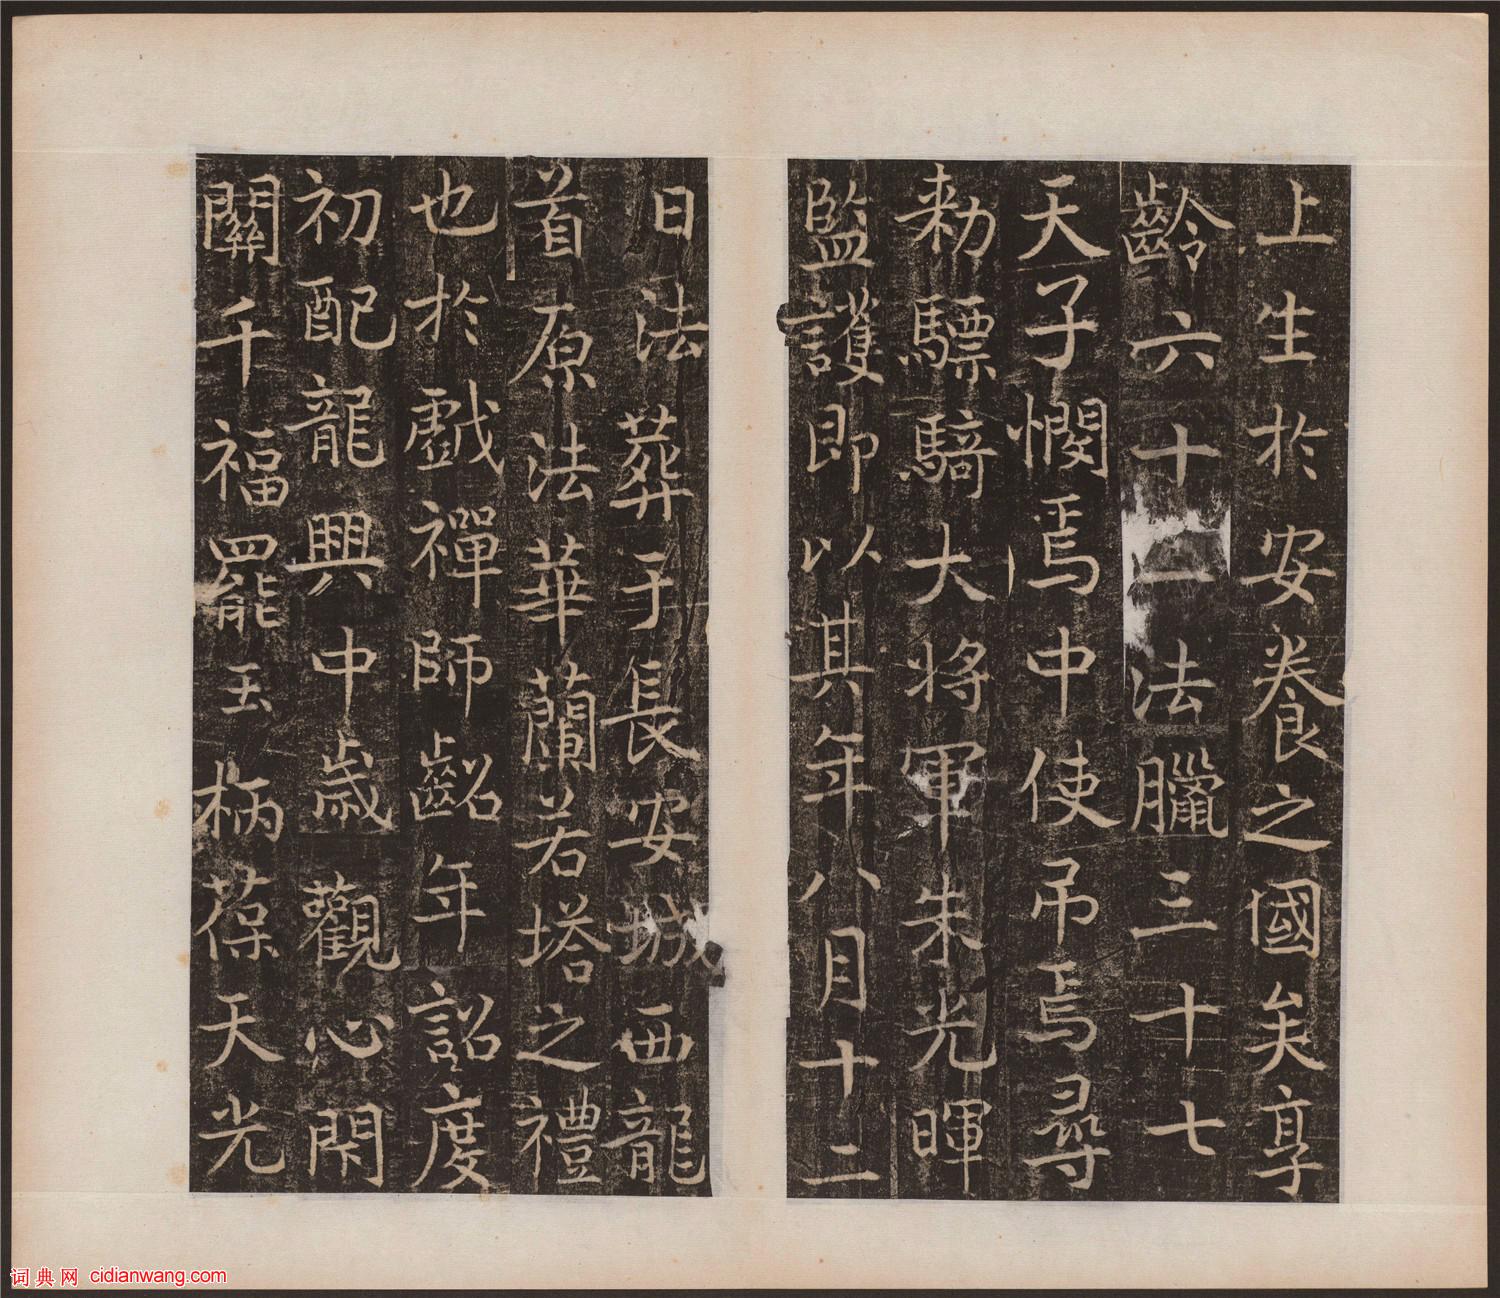 上生於安養之國矣享
齡六十一法臘三十七
天子憫焉中使吊焉尋
勑驃騎大將軍朱光暉
監護即以其年八月十二
日法葬于長安城西龍
首原法華蘭若塔之禮
也於戲禪師齠年詔度
初配龍興中歲觀心閑
關千福罷玉柄葆天光
词典网 cidianwang.com